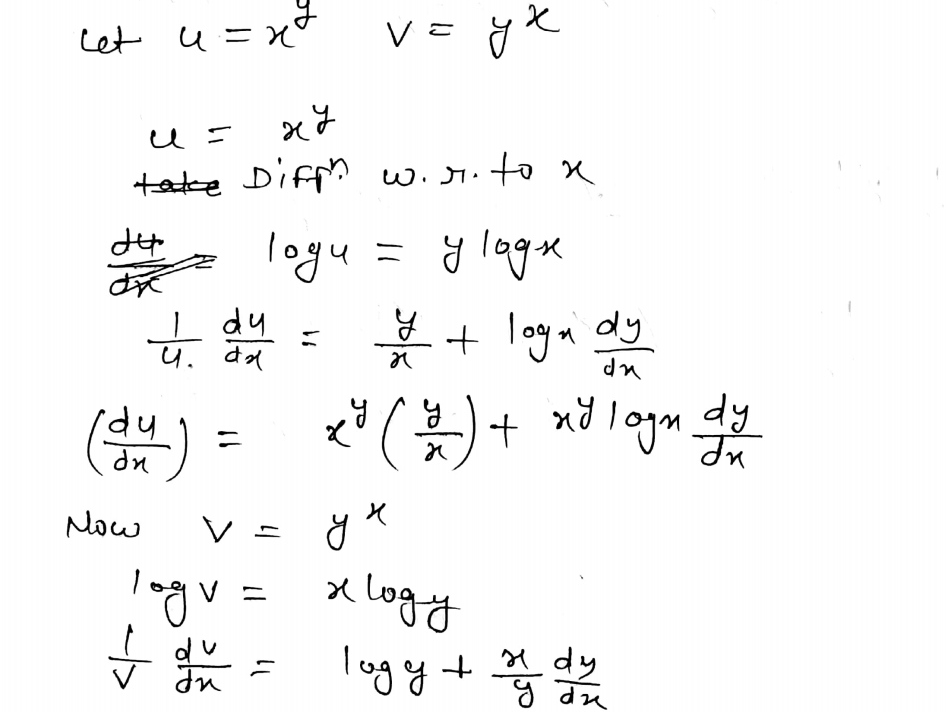 Let u = x^y v = y^x
u = x^y
take Diffⁿ w.r. to x
du/dx = log u = y log x
1/u. du/dx = y/x + log x dy/dx
(du/dx) = x^y (y/x) + x^y log x dy/dx
Now v = y^x
log v = x log y
1/v dv/dx = log y + x/y dy/dx